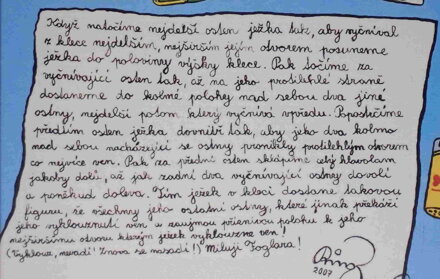 Když natočíme nejdelší osten ježka tak, aby vyčníval
z klece nejdelším, nejširším jejím otvorem posuneme
ježka do poloviny výšky klece. Pak točíme za
vyčnívající osten tak, až na jeho protilehlé straně
dostaneme do kolmé polohy nad sebou dva jiné
ostny, nejdelší potom který vyčnívá vpředu. Popostrčíme
předním osten ježka dovnitř tak, aby jeho dva kolmo
nad sebou nacházející se ostny pronikly protilehlým otvorem
co nejvíce ven. Pak za přední osten sklápíme celý hlavolam
jakoby dolů, až jak zadní dva vyčnívající ostny dovolí
a poněkud doleva. Tím ježek v kleci dostane takovou
figuru, že všechny jeho ostatní ostny, které jinak překáží
jeho vyklouznutí ven a zaujmou příznivou polohu k jeho
nejširšímu otvoru kterým ježek vyklouzne ven!
(Vyklouz, nevadí! Znova se nasadí!) Miluji Foglara!
2007